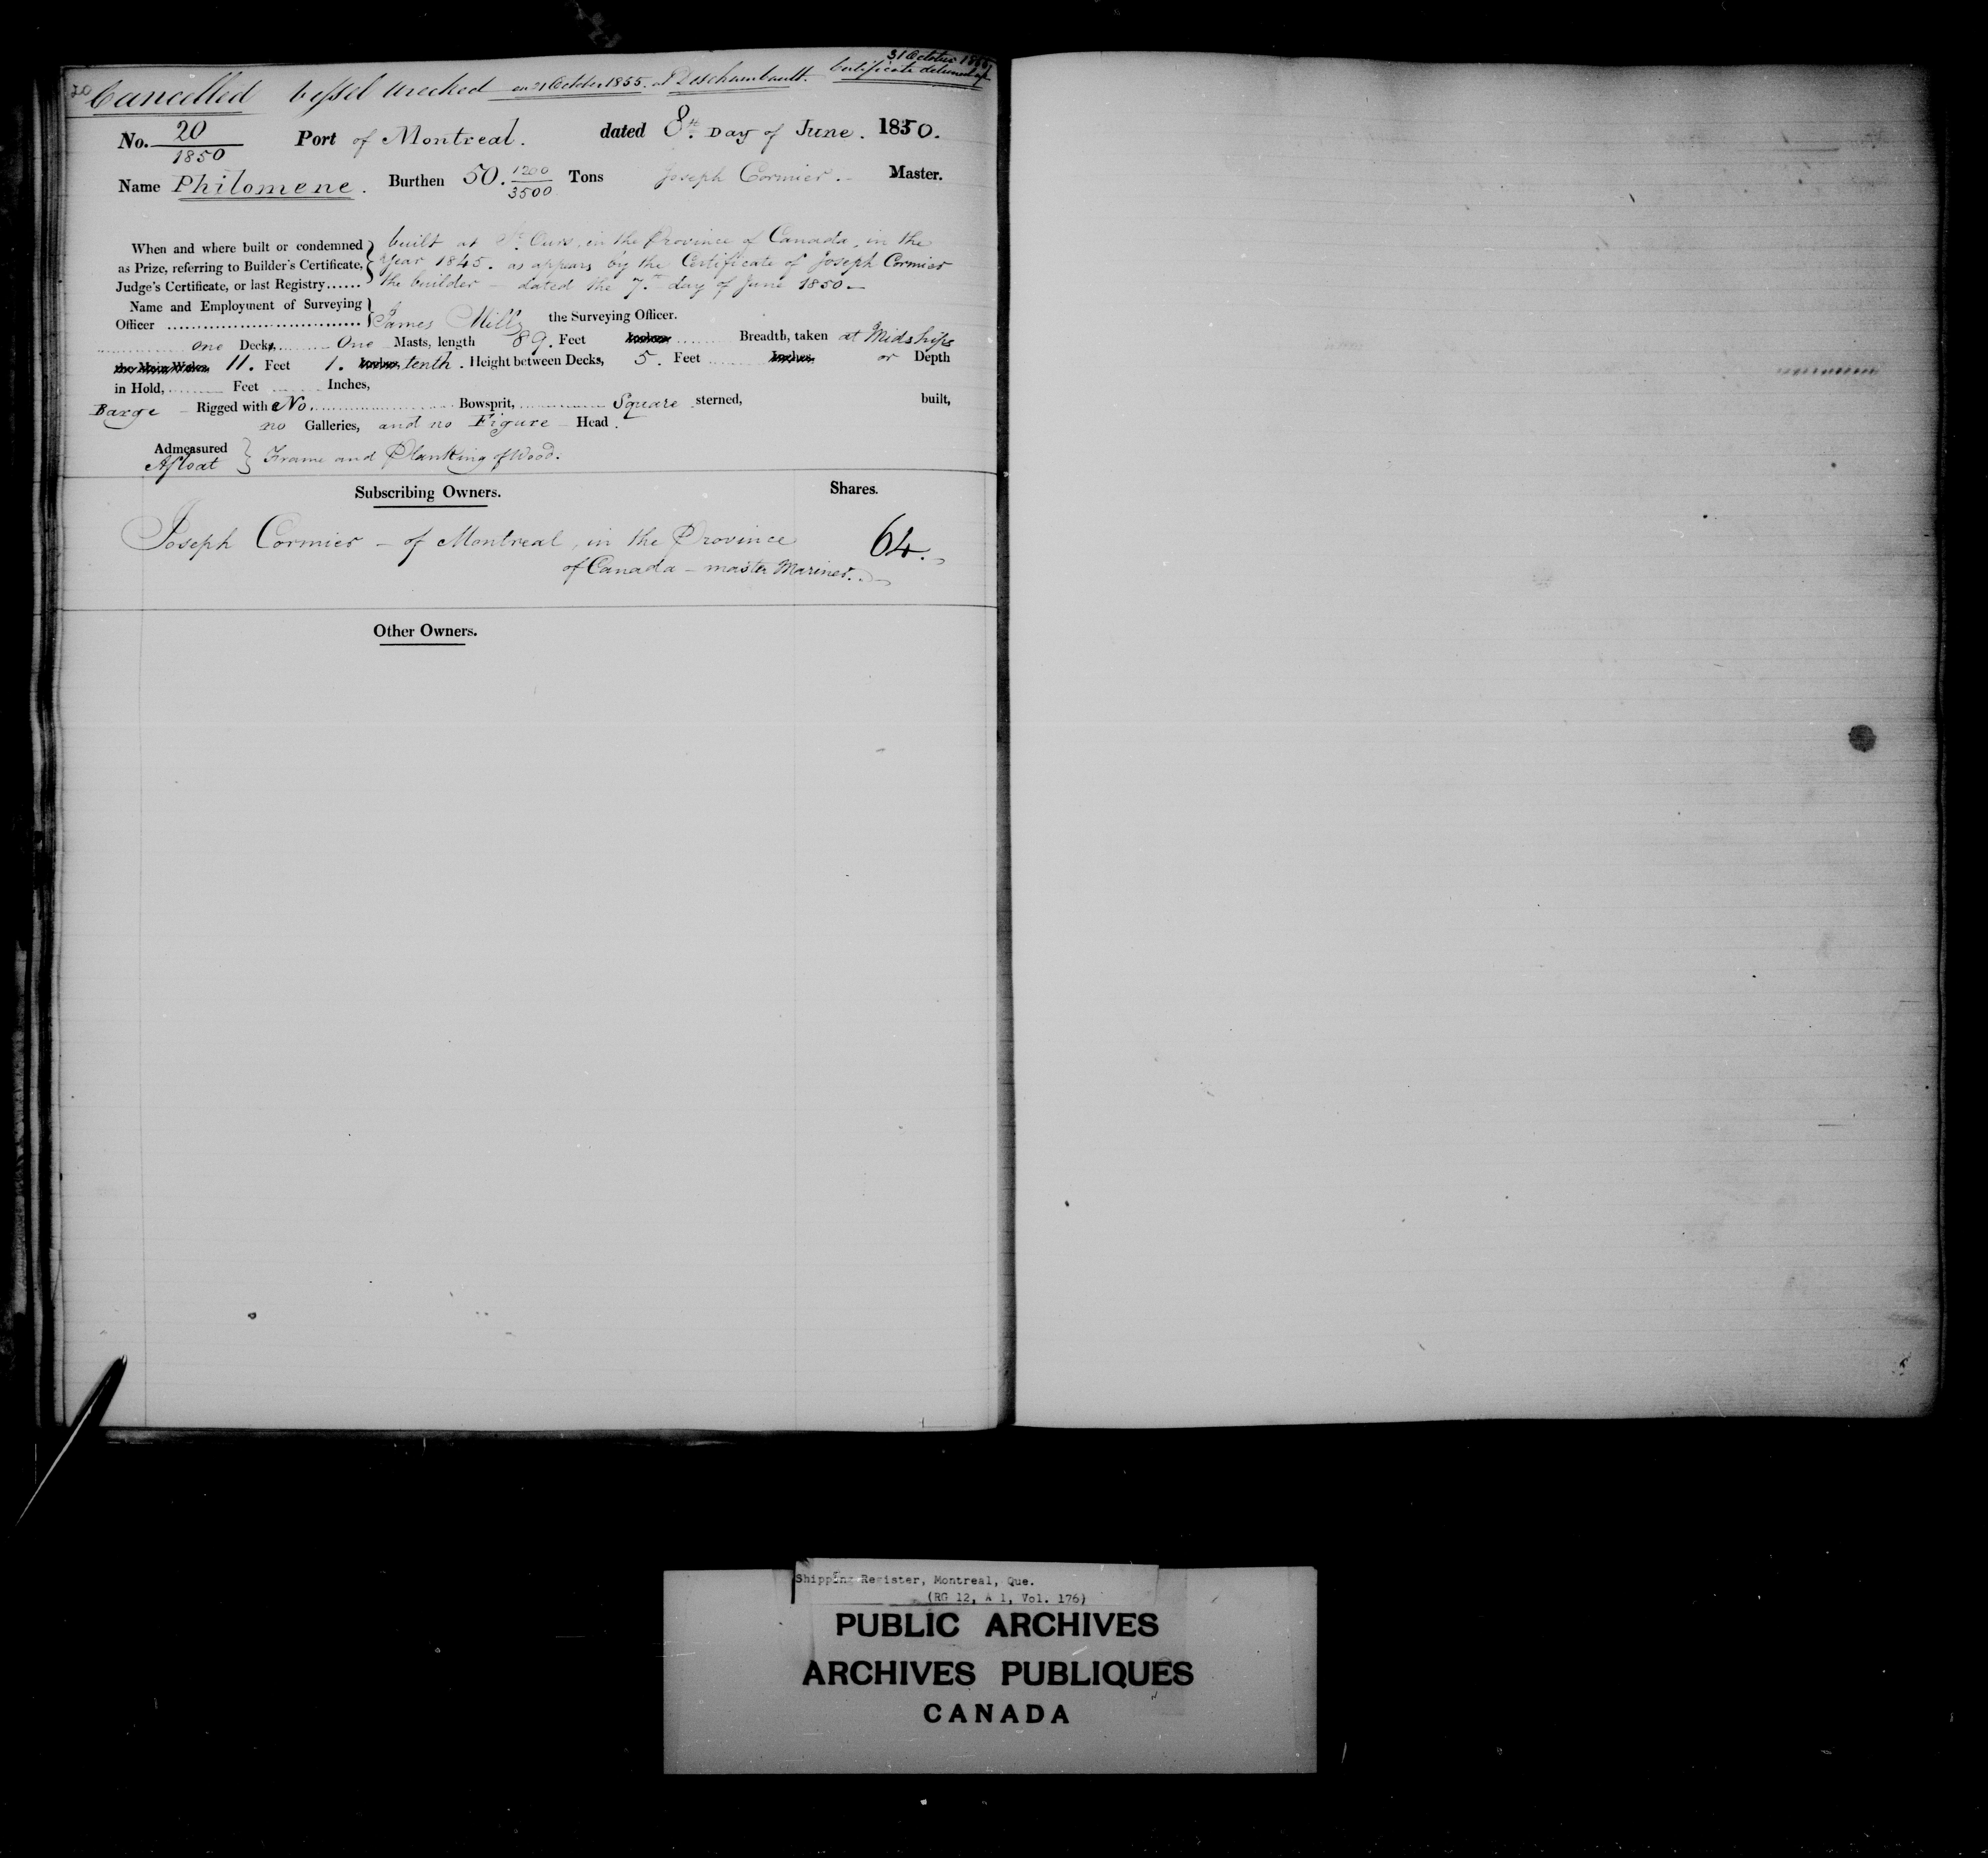 31 October 1855
20 Cancelled Vessel Wrecked on 21 October 1855. at Deschambault. Certificate delivered up
No. 20/1850 Port of Montreal. dated 8th Day of June. 1850.
Name Philomene. Burthen 50. 1200/3500 Tons Joseph Cormier. Master.
When and where built or condemned as Prize, referring to Builder's Certificate, Judge's Certificate, or last Registry......
built at St. Ours, in the Province of Canada, in the
Year 1845. as appears by the Certificate of Joseph Cormier
the builder — dated the 7th day of June 1850 —
Name and Employment of Surveying
Officer James Mills the Surveying Officer.
one Deck, One Masts, length 89. Feet Inches Breadth, taken at Midships
the Main Wales 11. Feet 1. Inches tenth. Height between Decks, 5. Feet Inches or Depth
in Hold, Feet Inches,
Barge Rigged with No. Bowsprit, Square sterned, built,
no Galleries, and no Figure Head.
Admeasured
Afloat } Frame and Planking of Wood.
Subscribing Owners. Shares.
Joseph Cormier — of Montreal, in the Province 64.
of Canada — master Mariner.
Other Owners.
Shipping Register, Montreal, Que.
(RG 12, A 1, Vol. 176)
PUBLIC ARCHIVES
ARCHIVES PUBLIQUES
CANADA